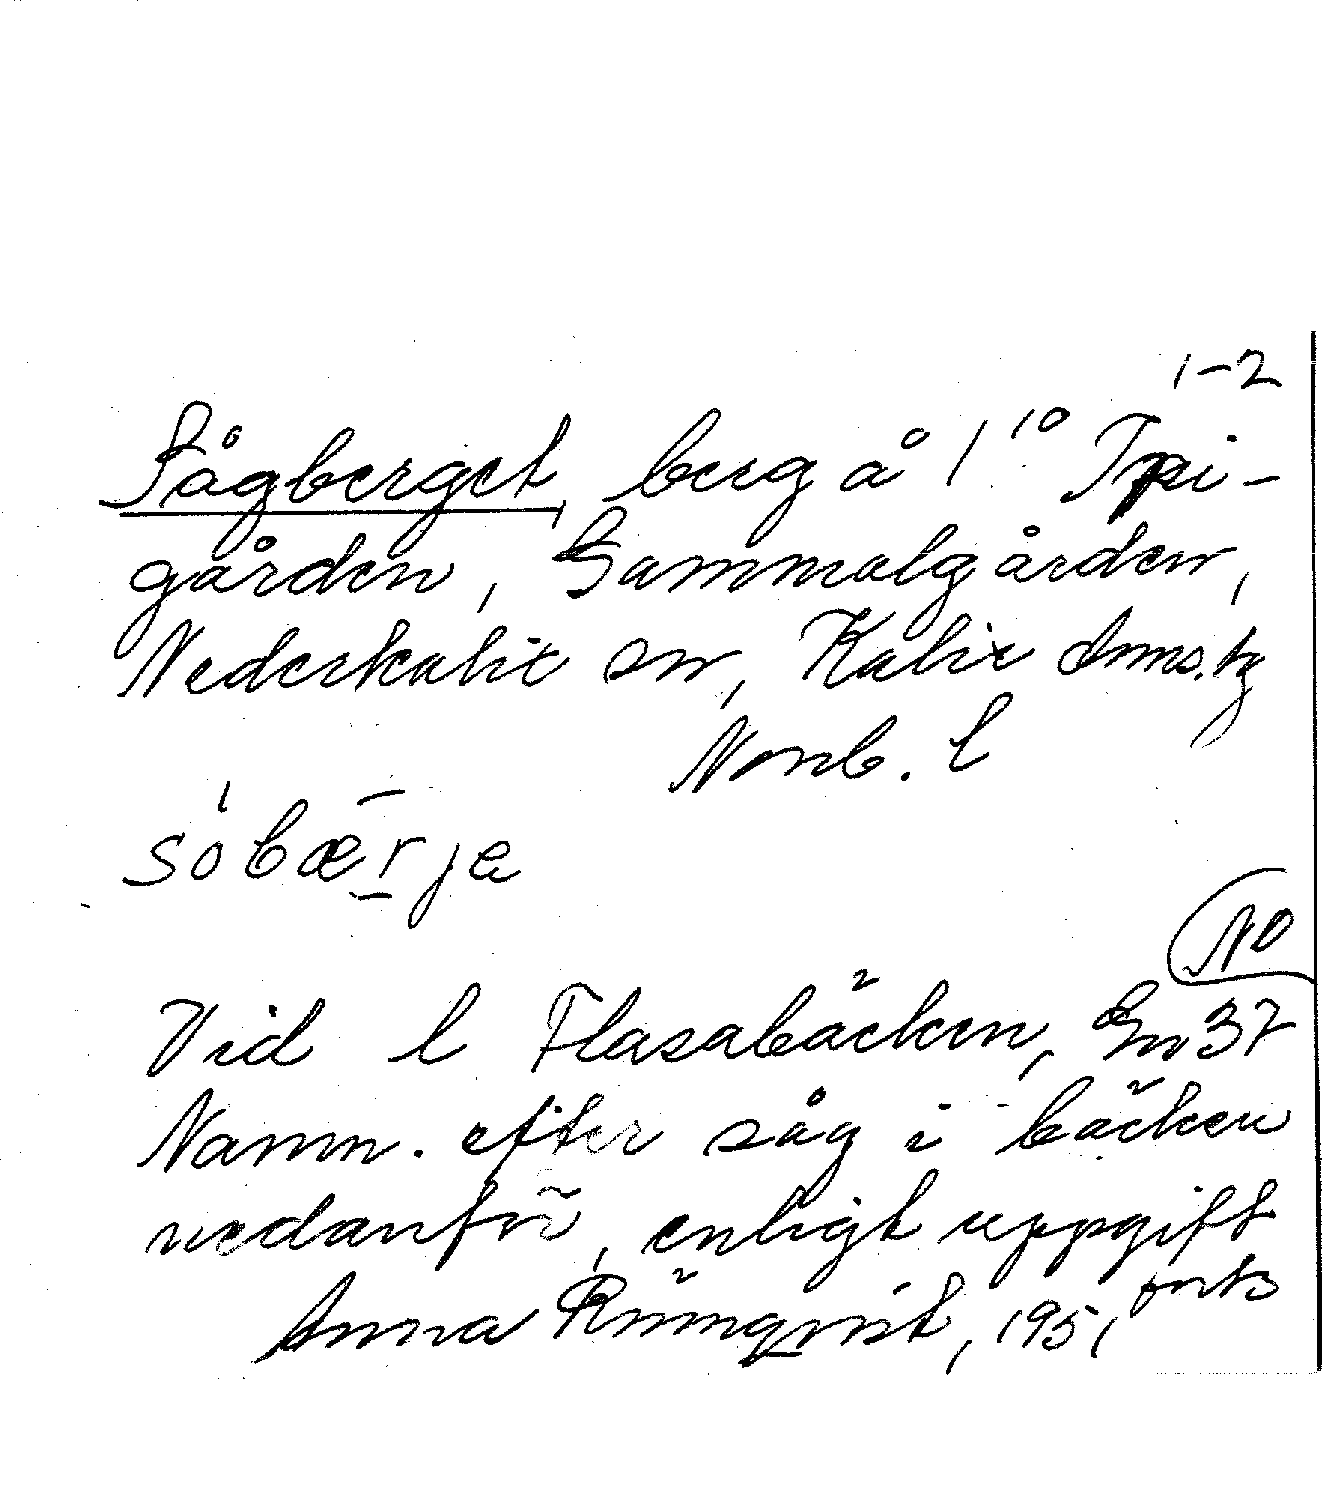 1-2
Sågberget, berg å 1¹⁰ Tpi-
gården, Gammalgården,
Nederkalix sn, Kalix dnms. tg
Norrb. l
sòbæ̅rja
NO
Vid l Flasabäcken, En 37
Namn. efter såg i bäcken
nedanför, enligt uppgift
Anna Römqvist, 1951 forts